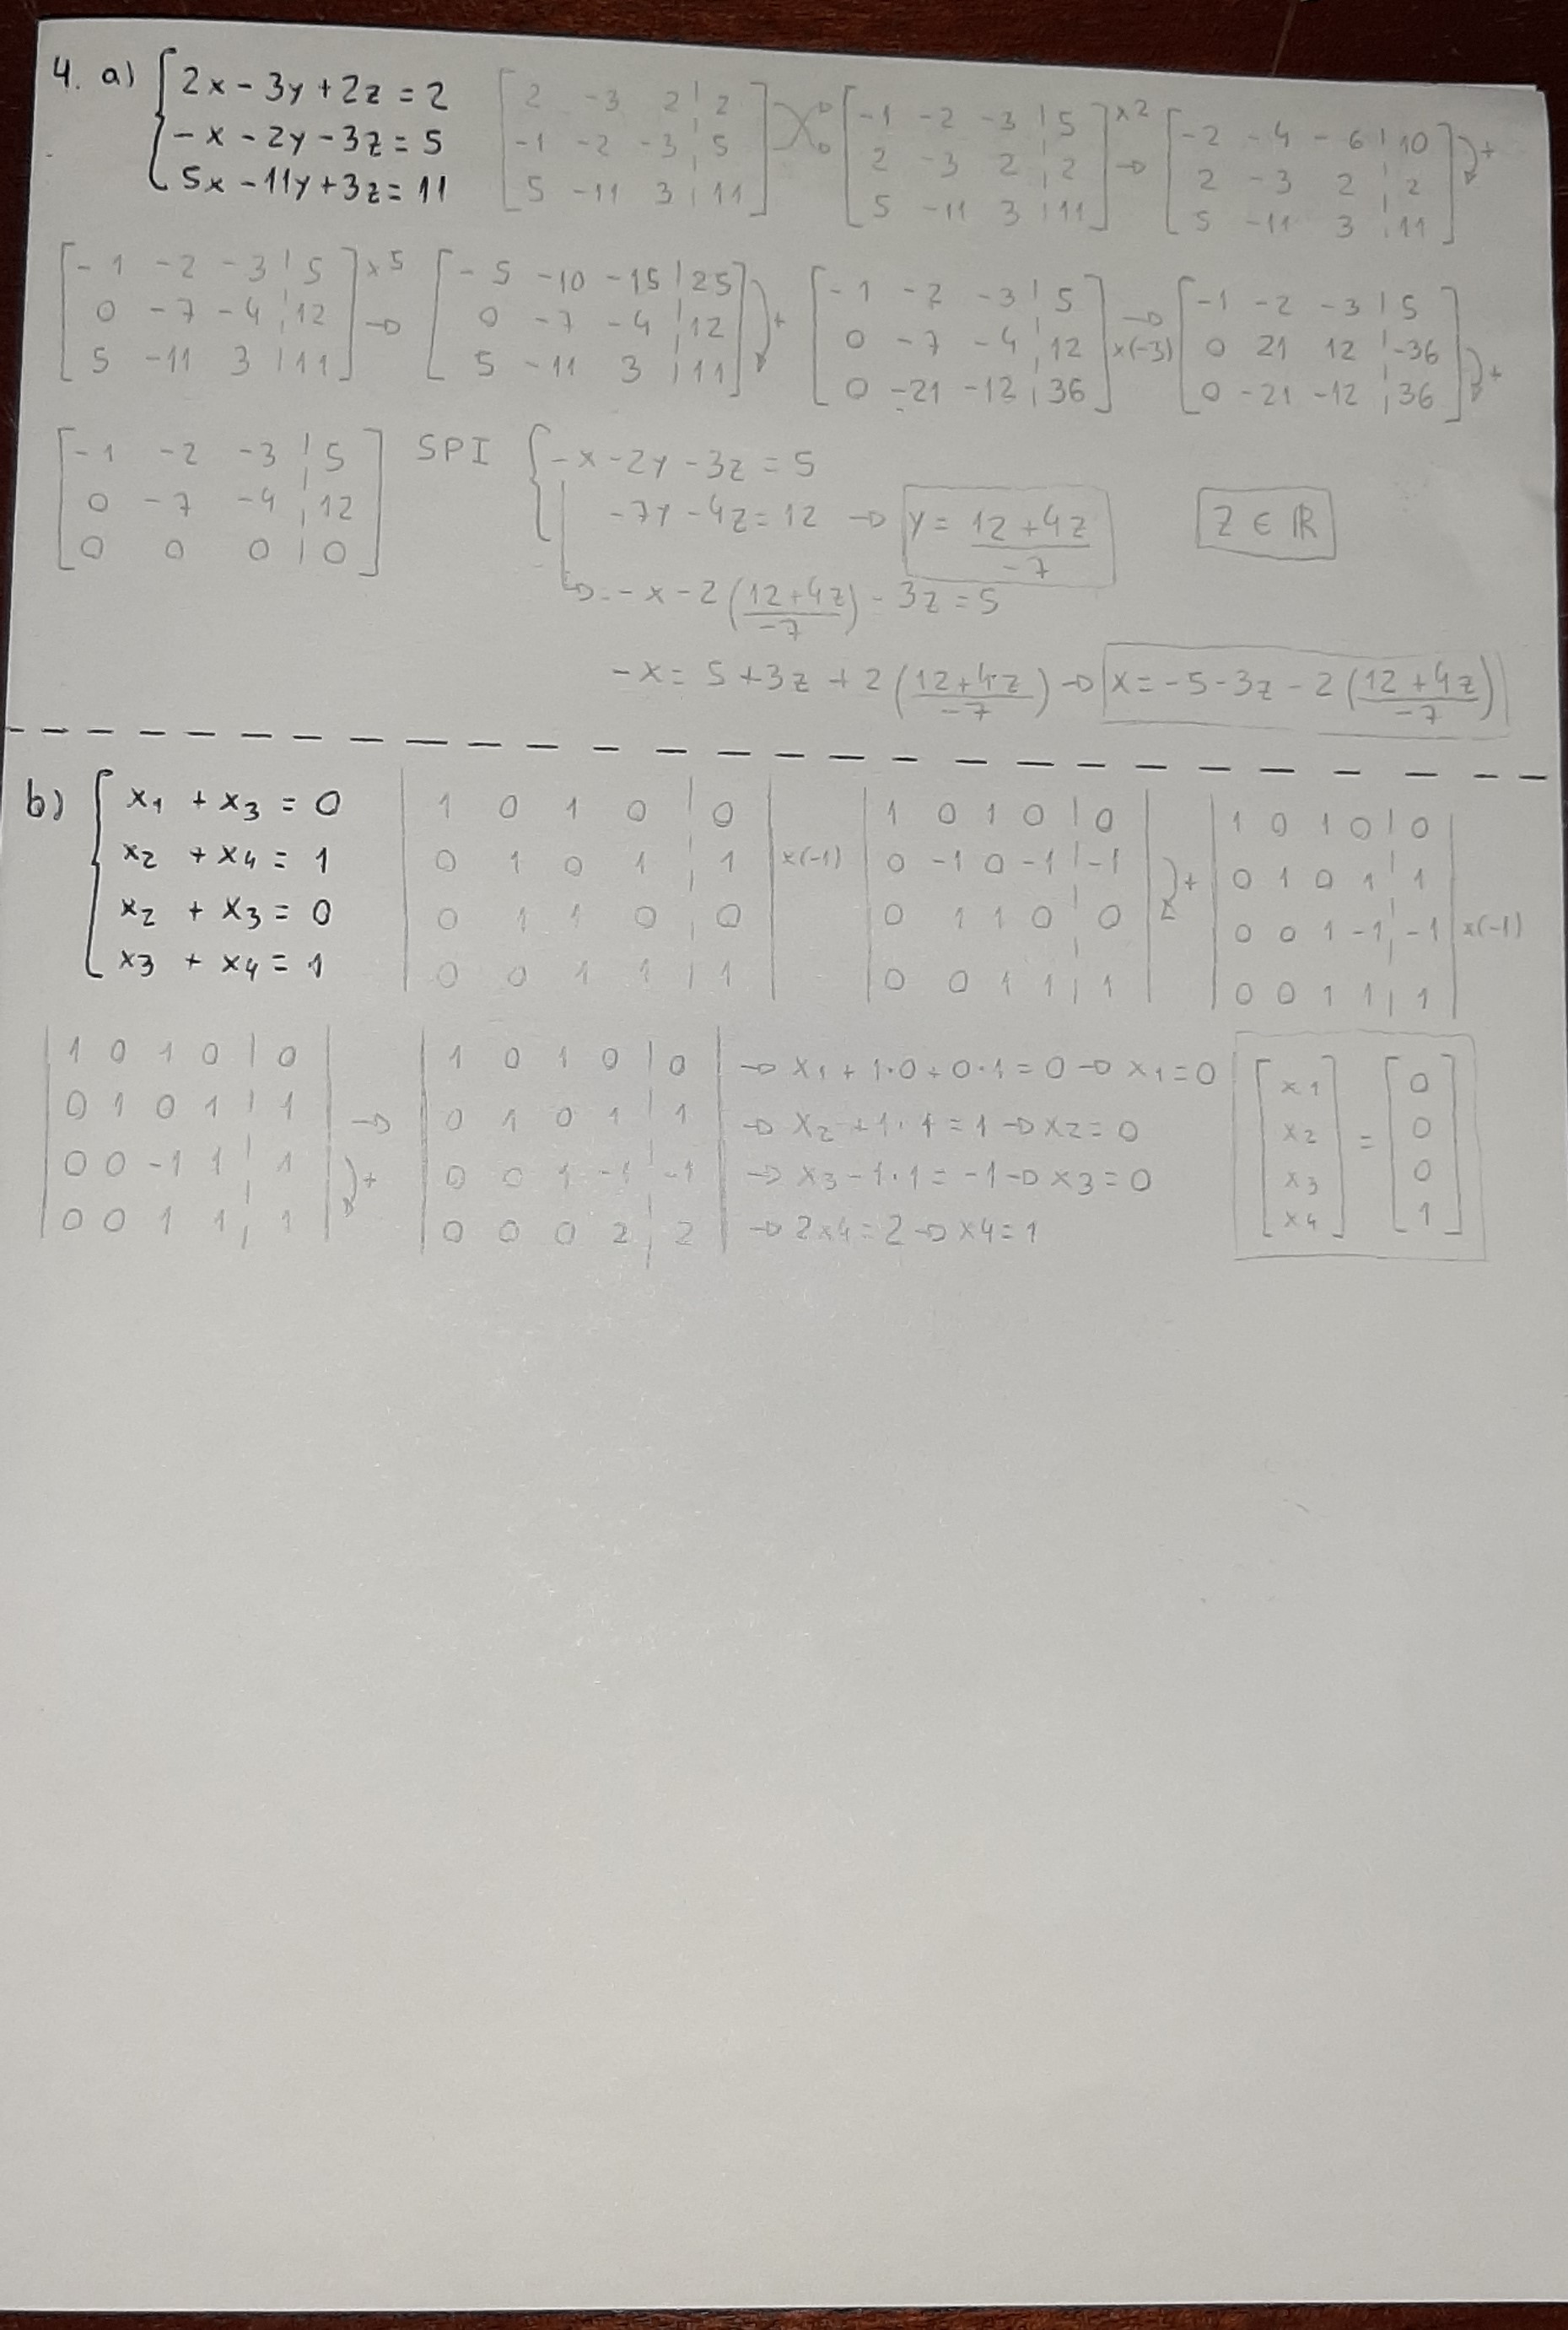 4. a) { 2x - 3y + 2z = 2
-x - 2y - 3z = 5
5x - 11y + 3z = 11
[ 2 -3 2 | 2
-1 -2 -3 | 5
5 -11 3 | 11 ]
[ -1 -2 -3 | 5
2 -3 2 | 2
5 -11 3 | 11 ] x2 →
[ -2 -4 -6 | 10
2 -3 2 | 2
5 -11 3 | 11 ] +
[ -1 -2 -3 | 5
0 -7 -4 | 12
5 -11 3 | 11 ] x5 →
[ -5 -10 -15 | 25
0 -7 -4 | 12
5 -11 3 | 11 ] +
[ -1 -2 -3 | 5
0 -7 -4 | 12
0 -21 -12 | 36 ] → x(-3)
[ -1 -2 -3 | 5
0 21 12 | -36
0 -21 -12 | 36 ] +
[ -1 -2 -3 | 5
0 -7 -4 | 12
0 0 0 | 0 ]
SPI { -x - 2y - 3z = 5
-7y - 4z = 12 → y = (12 + 4z)/-7 z ∈ ℝ
→ -x - 2((12 + 4z)/-7) - 3z = 5
-x = 5 + 3z + 2((12 + 4z)/-7) → x = -5 - 3z - 2((12 + 4z)/-7)
b) { x1 + x3 = 0
x2 + x4 = 1
x2 + x3 = 0
x3 + x4 = 1
| 1 0 1 0 | 0
0 1 0 1 | 1
0 1 1 0 | 0
0 0 1 1 | 1 | x(-1)
| 1 0 1 0 | 0
0 -1 0 -1 | -1
0 1 1 0 | 0
0 0 1 1 | 1 | +
| 1 0 1 0 | 0
0 1 0 1 | 1
0 0 1 -1 | -1
0 0 1 1 | 1 | x(-1)
| 1 0 1 0 | 0
0 1 0 1 | 1
0 0 -1 1 | 1
0 0 1 1 | 1 | → +
| 1 0 1 0 | 0 | → x1 + 1·0 + 0·1 = 0 → x1 = 0
0 1 0 1 | 1 | → x2 + 1·1 = 1 → x2 = 0
0 0 1 -1 | -1 | → x3 - 1·1 = -1 → x3 = 0
0 0 0 2 | 2 | → 2x4 = 2 → x4 = 1
[ x1
x2
x3
x4 ] = [ 0
0
0
1 ]